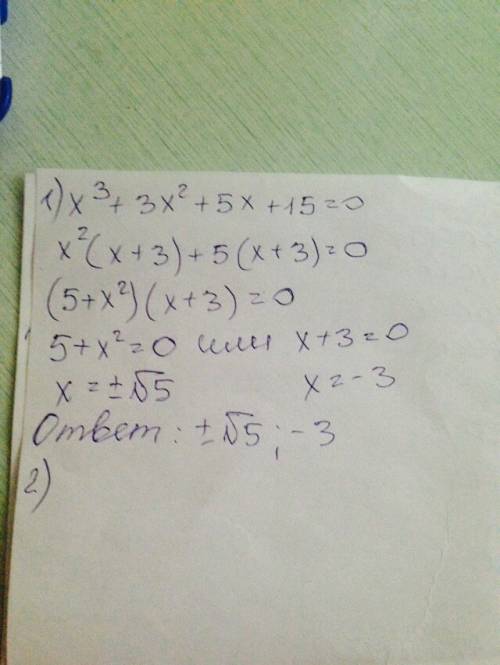 1) x³ + 3x² + 5x + 15 = 0
x²(x + 3) + 5(x + 3) = 0
(5 + x²)(x + 3) = 0
5 + x² = 0 или x + 3 = 0
x = ±√5 x = -3
Ответ: ±√5; -3
2)